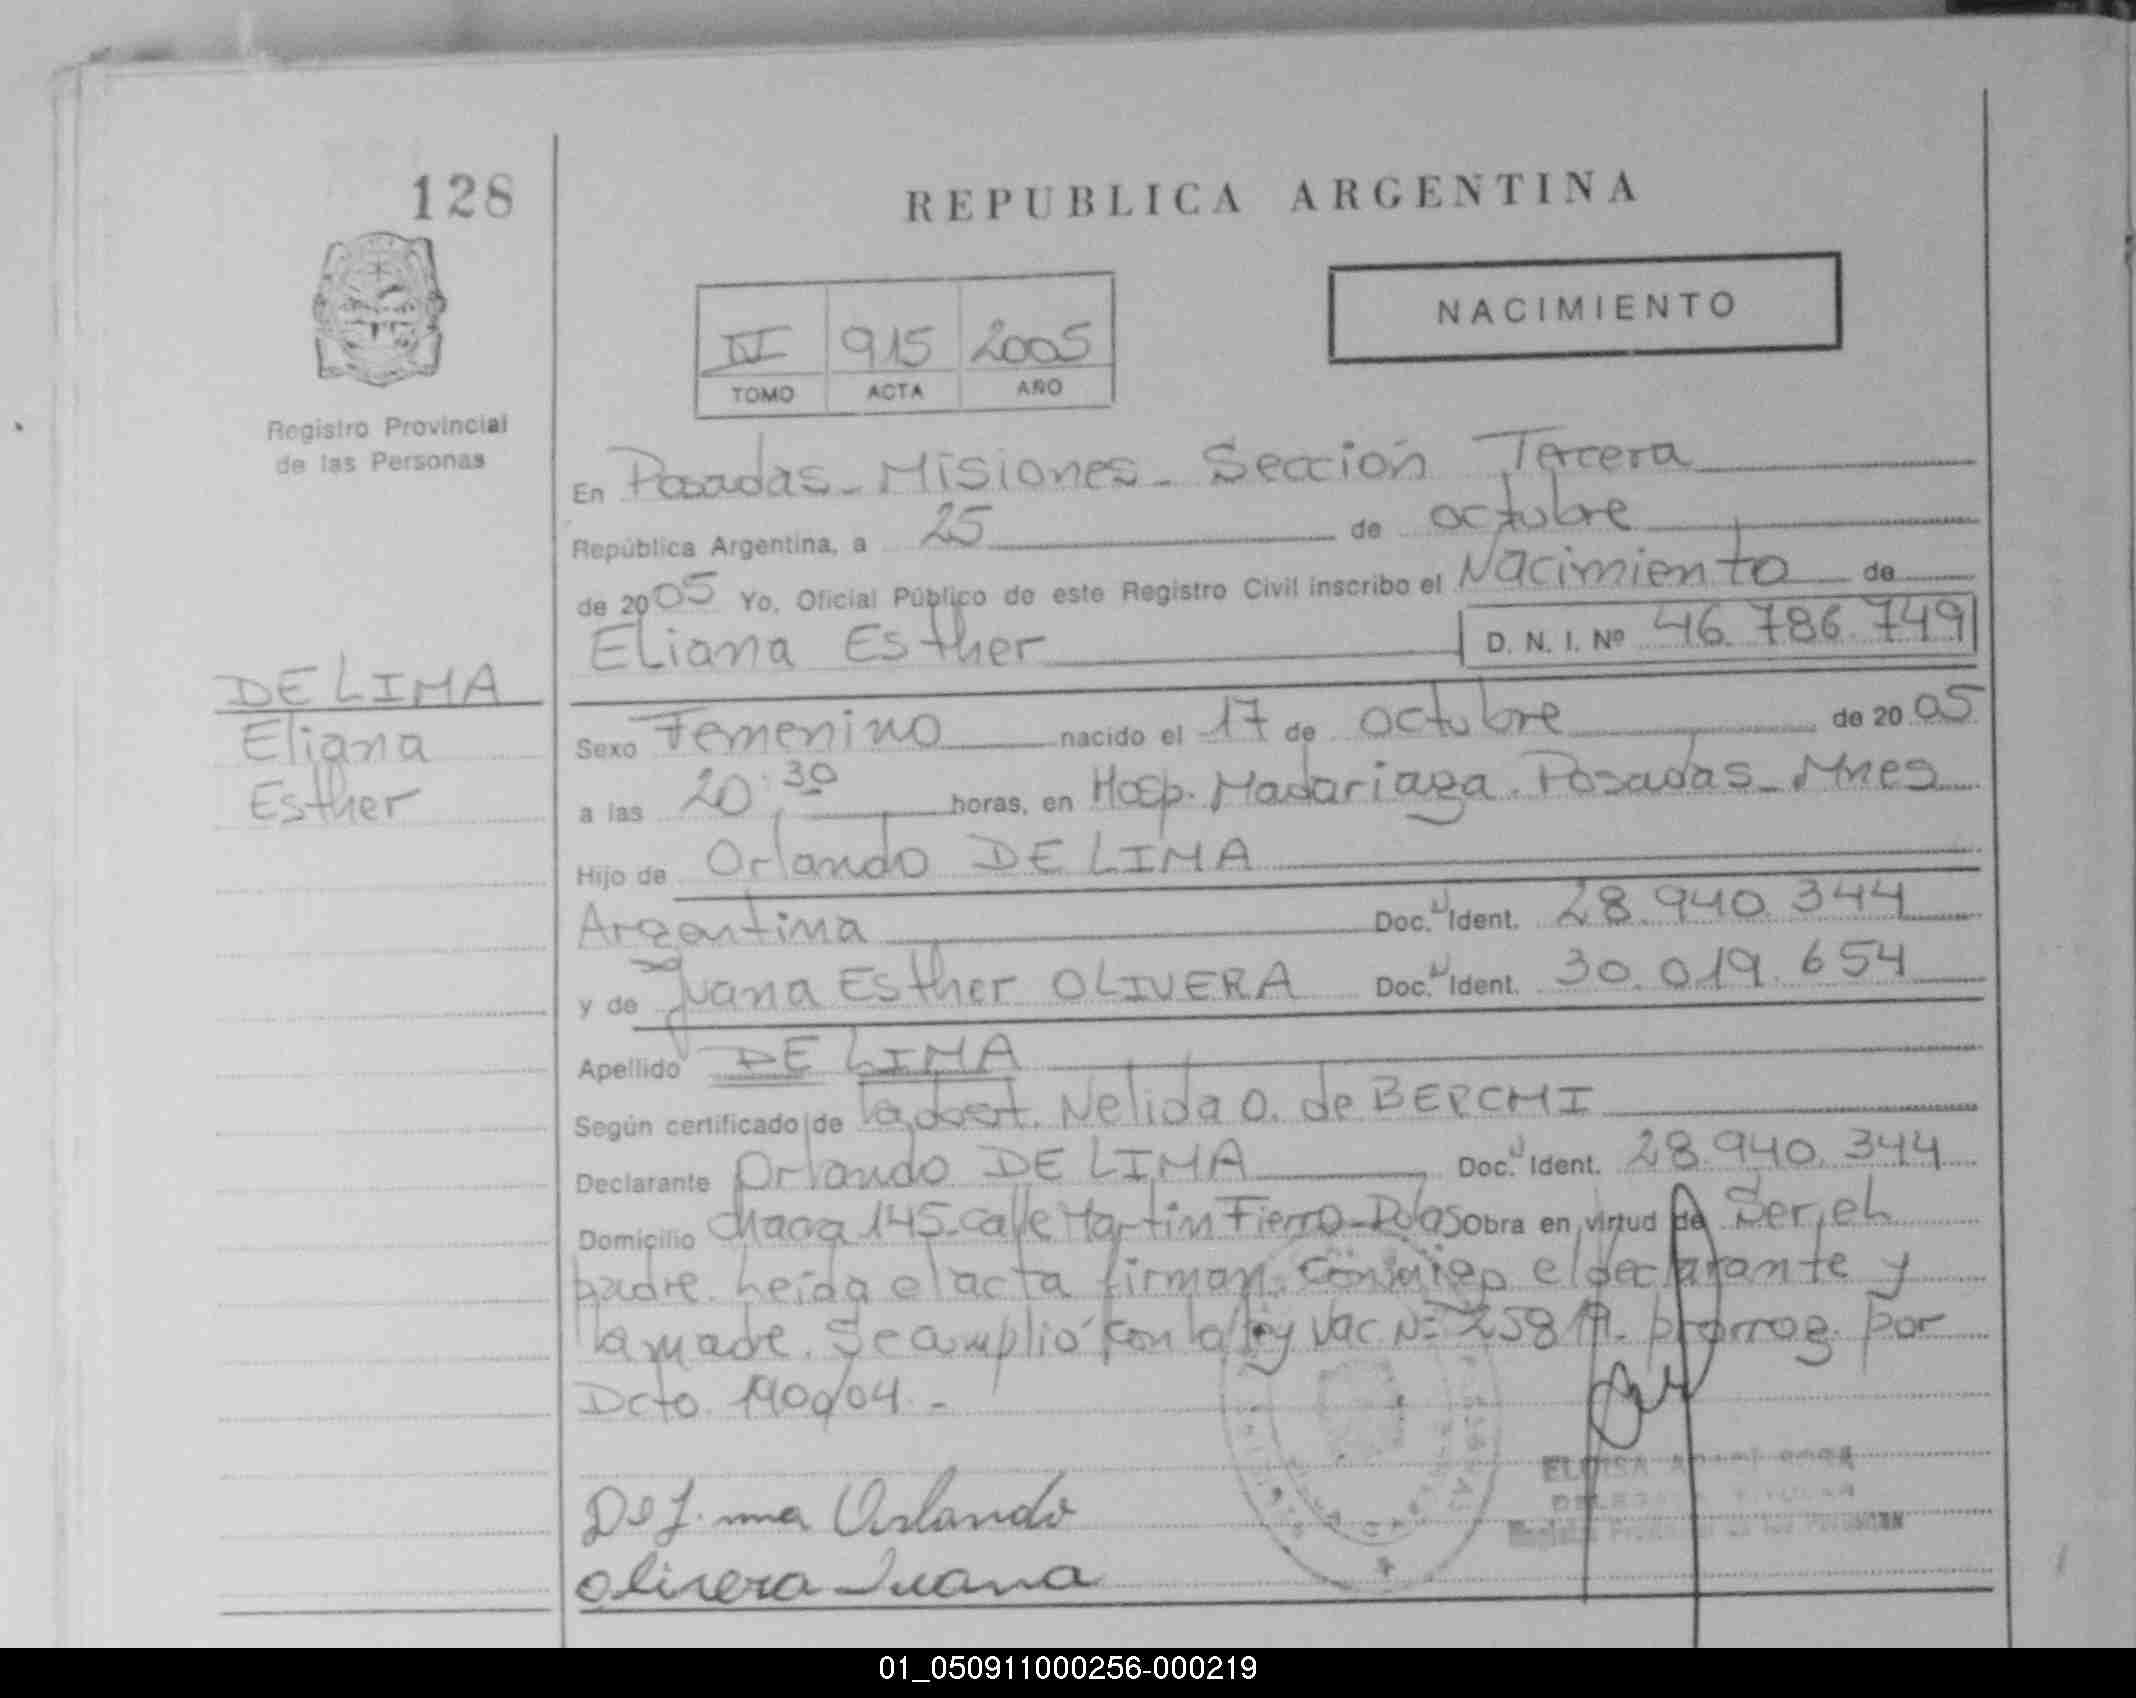 128
REPUBLICA ARGENTINA
NACIMIENTO
915 2005
TOMO ACTA AÑO
Registro Provincial
de las Personas
En Posadas - Misiones - Sección Tercera
República Argentina, a 25 de octubre
de 2005 Yo, Oficial Público de este Registro Civil inscribo el Nacimiento de
Eliana Esther D. N. I. Nº 46.786.749
DE LIMA
Eliana
Esther
Sexo Femenino nacido el 17 de octubre de 2005
a las 20:30 horas, en Hosp. Madariaga. Posadas - Mnes
Hijo de Orlando DE LIMA
Argentina Doc. Ident. 28.940.344
y de Juana Esther OLIVERA Doc. Ident. 30.019.654
Apellido DE LIMA
Según certificado de la obst. Nelida O. de
Declarante Orlando DE LIMA Doc. Ident. 28.940.344
Domicilio chacra 145 - calle Martin Fierro - Pdas Obra en virtud de Ser el
padre. Leida el acta firman el declarante y
la madre. Se amplió con la ley Nac Nº prorrog. por
Dcto.
De Lima Orlando
Olivera Juana
ELOISA
01_050911000256-000219